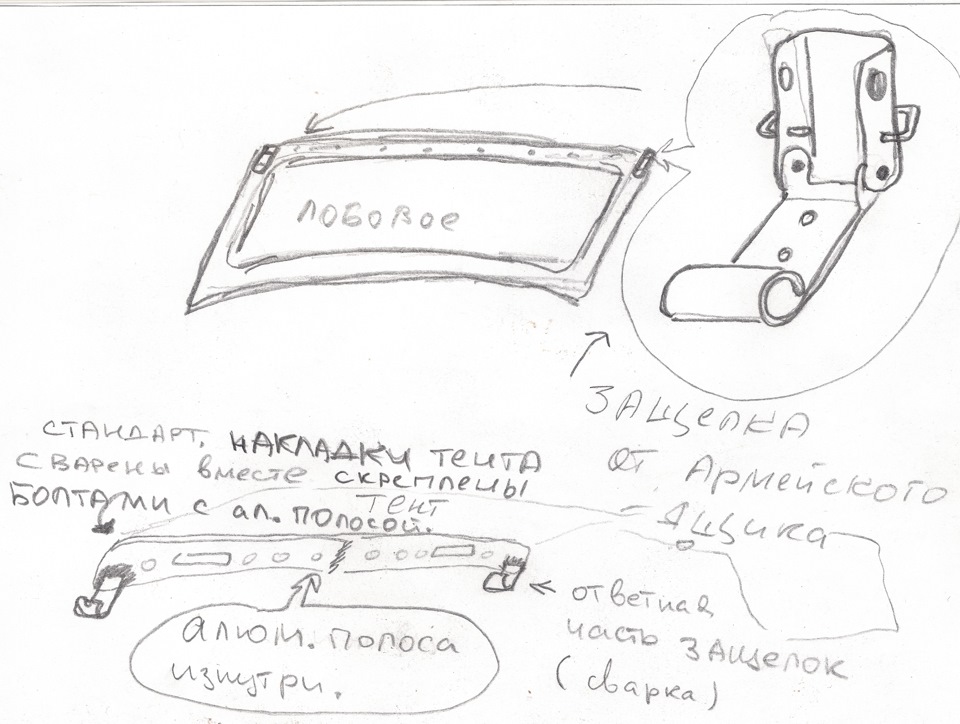 ЛОБОВОЕ
ЗАЩЕЛКА
ОТ АРМЕЙСКОГО
ЯЩИКА
СТАНДАРТ. НАКЛАДКИ ТЕНТА
СВАРЕНЫ ВМЕСТЕ СКРЕПЛЕНЫ
БОЛТАМИ С АЛ. ПОЛОСОЙ.
ТЕНТ
ОТВЕТНАЯ
ЧАСТЬ ЗАЩЕЛОК
(СВАРКА)
АЛЮМ. ПОЛОСА
ИЗНУТРИ.